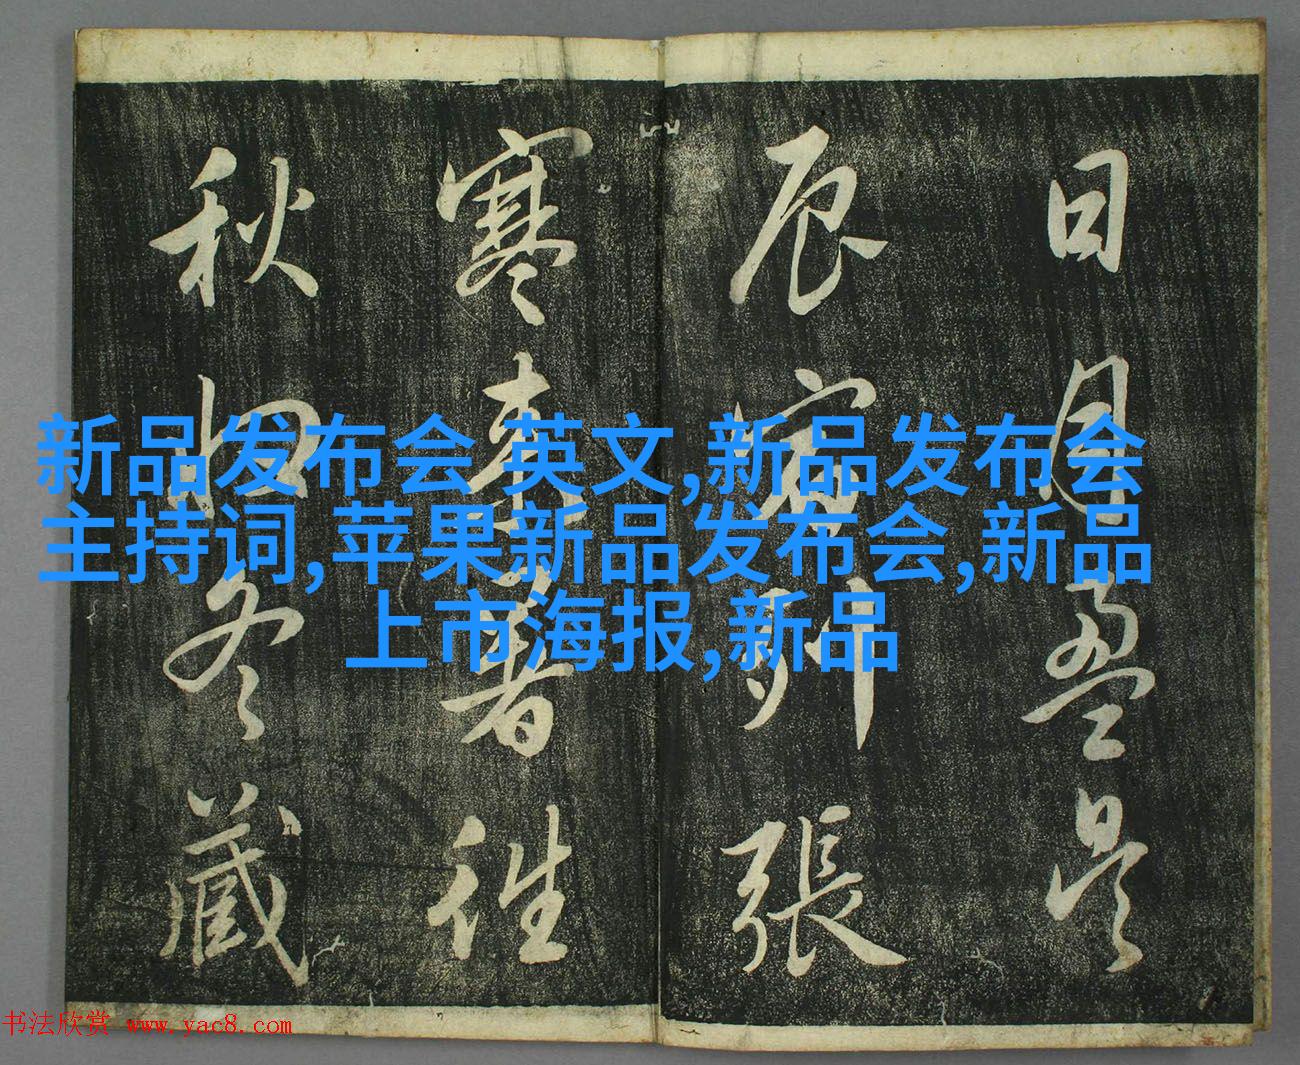 日月盈昃
辰宿列張
寒來暑往
秋收冬藏
新品发布会 英文,新品发布会
主持词,苹果新品发布会,新品
上市海报,新品
书法欣赏 www.yac8.com